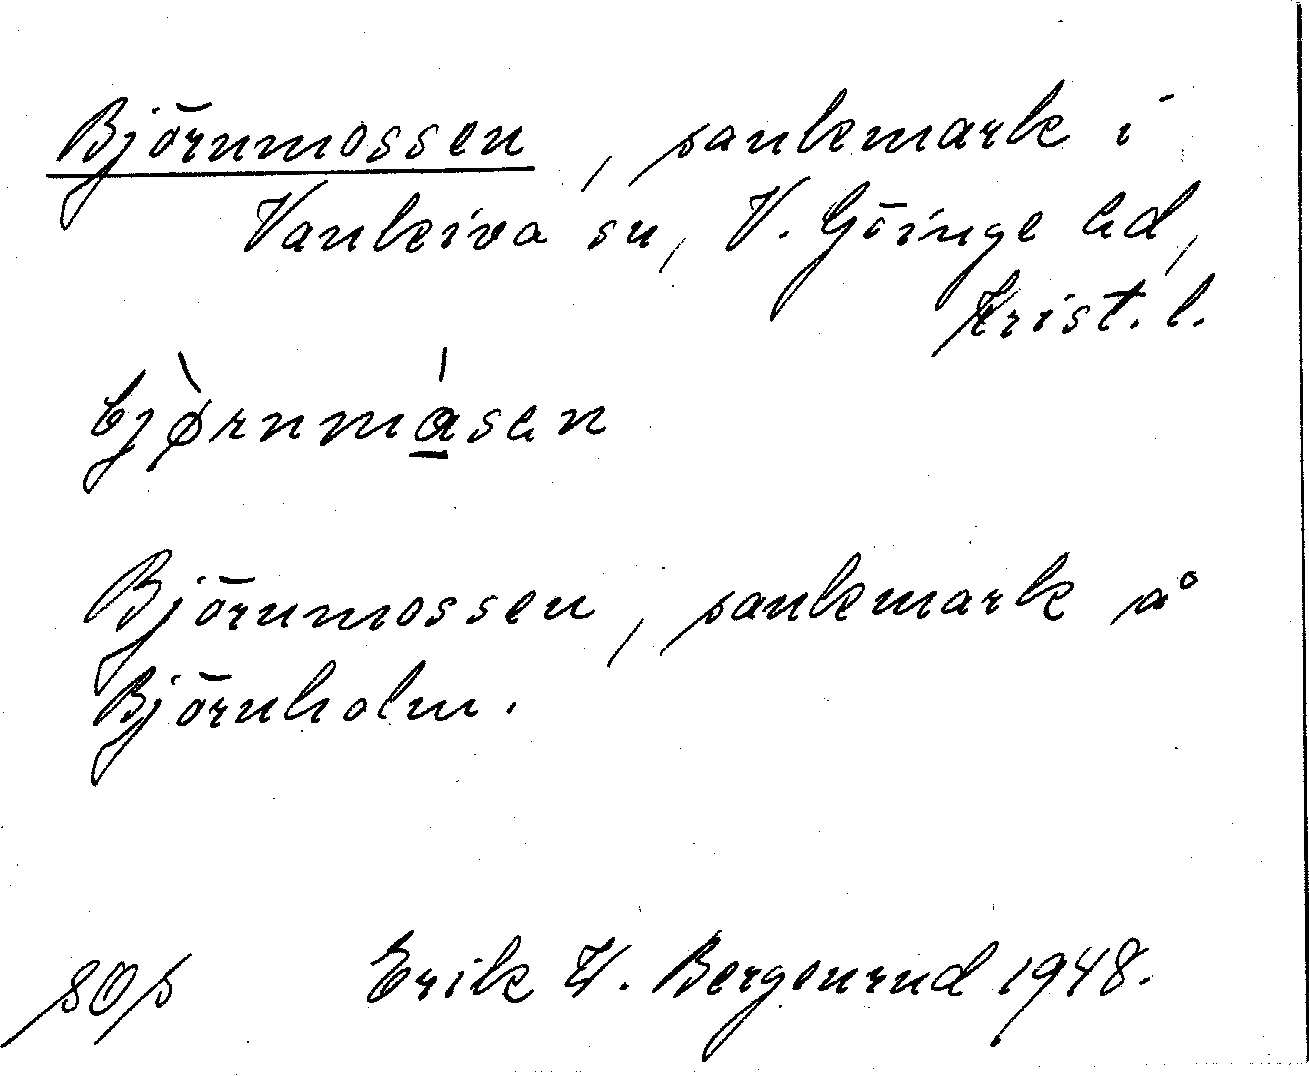 Björnmossen, sankmark i
Vankiva sn, V. Göinge hd,
Krist. l.
bjø̀rnmásen
Björnmossen, sankmark på
Björnholm.
Erik H. Bergenrud 1948.